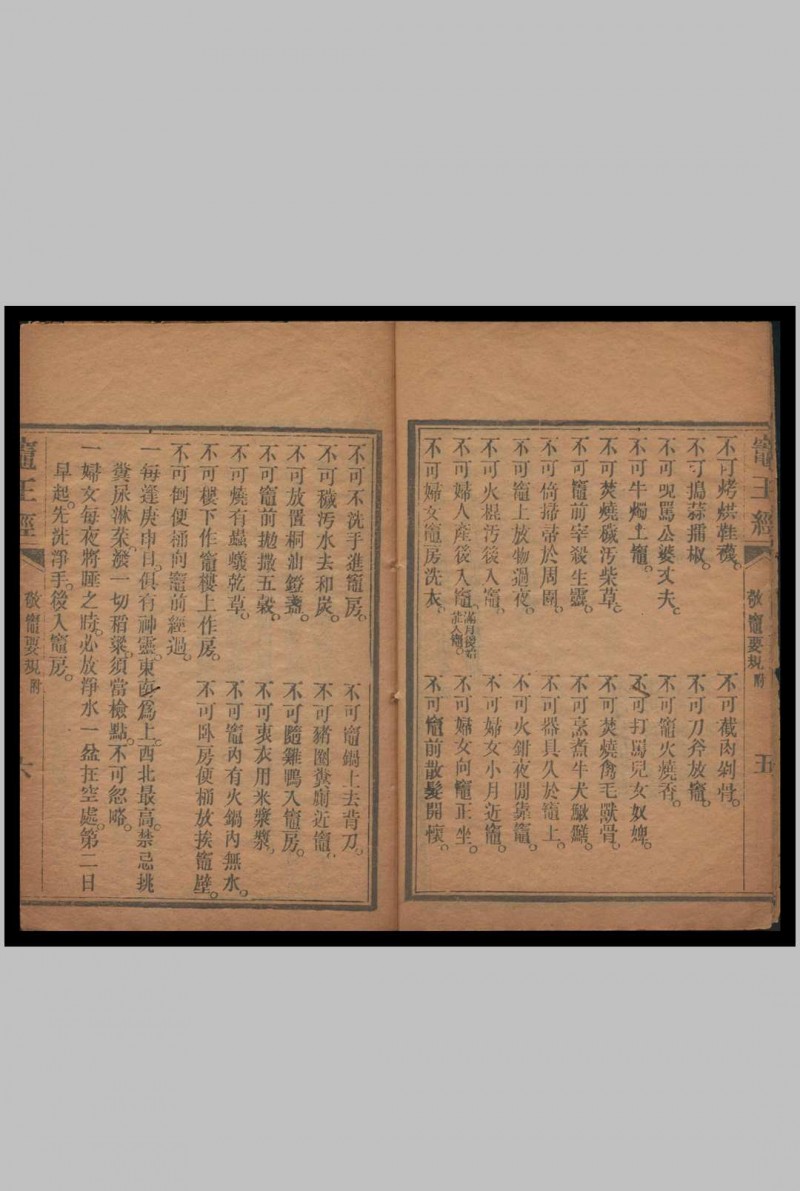 竈王經
敬竈要規附
五
不可烤烘鞋襪。不可截肉剁骨。
不可搗蒜擂椒。不可刀斧放竈。
不可呪罵公婆丈夫。不可竈火燒香。
不可牛燭上竈。不可打罵兒女奴婢。
不可焚燒穢汚柴草。不可焚燒禽毛獸骨。
不可竈前宰殺生靈。不可烹煮牛犬鰍鱔。
不可倚掃帚於周圍。不可器具久於竈上。
不可竈上放物過夜。不可火鉗夜間靠竈。
不可火棍汚後入竈。不可婦女小月近竈。
不可婦人產後入竈。滿月後始許入竈。不可婦女向竈正坐。
不可婦女竈房洗衣。不可竈前散髮開懷。
不可不洗手進竈房。不可竈鍋上去背刀。
不可穢汚水去和炭。不可豬圈糞廁近竈。
不可放置桐油鐙盞。不可隨雞鴨入竈房。
不可竈前拋撒五穀。不可衷衣用米漿漿。
不可燒有蟲蟻乾草。不可竈內有火鍋內無水。
不可樓下作竈樓上作房。不可臥房便桶放挨竈壁。
不可倒便桶向竈前經過。
一每逢庚申日。俱有神靈。東面爲上。西北最高。禁忌挑
糞尿淋菜。潑一切稻粱。須當檢點。不可忽略。
一婦女每夜將睡之時。必放淨水一盆在空處。第二日
早起。先洗淨手。後入竈房。
竈王經
敬竈要規附
六